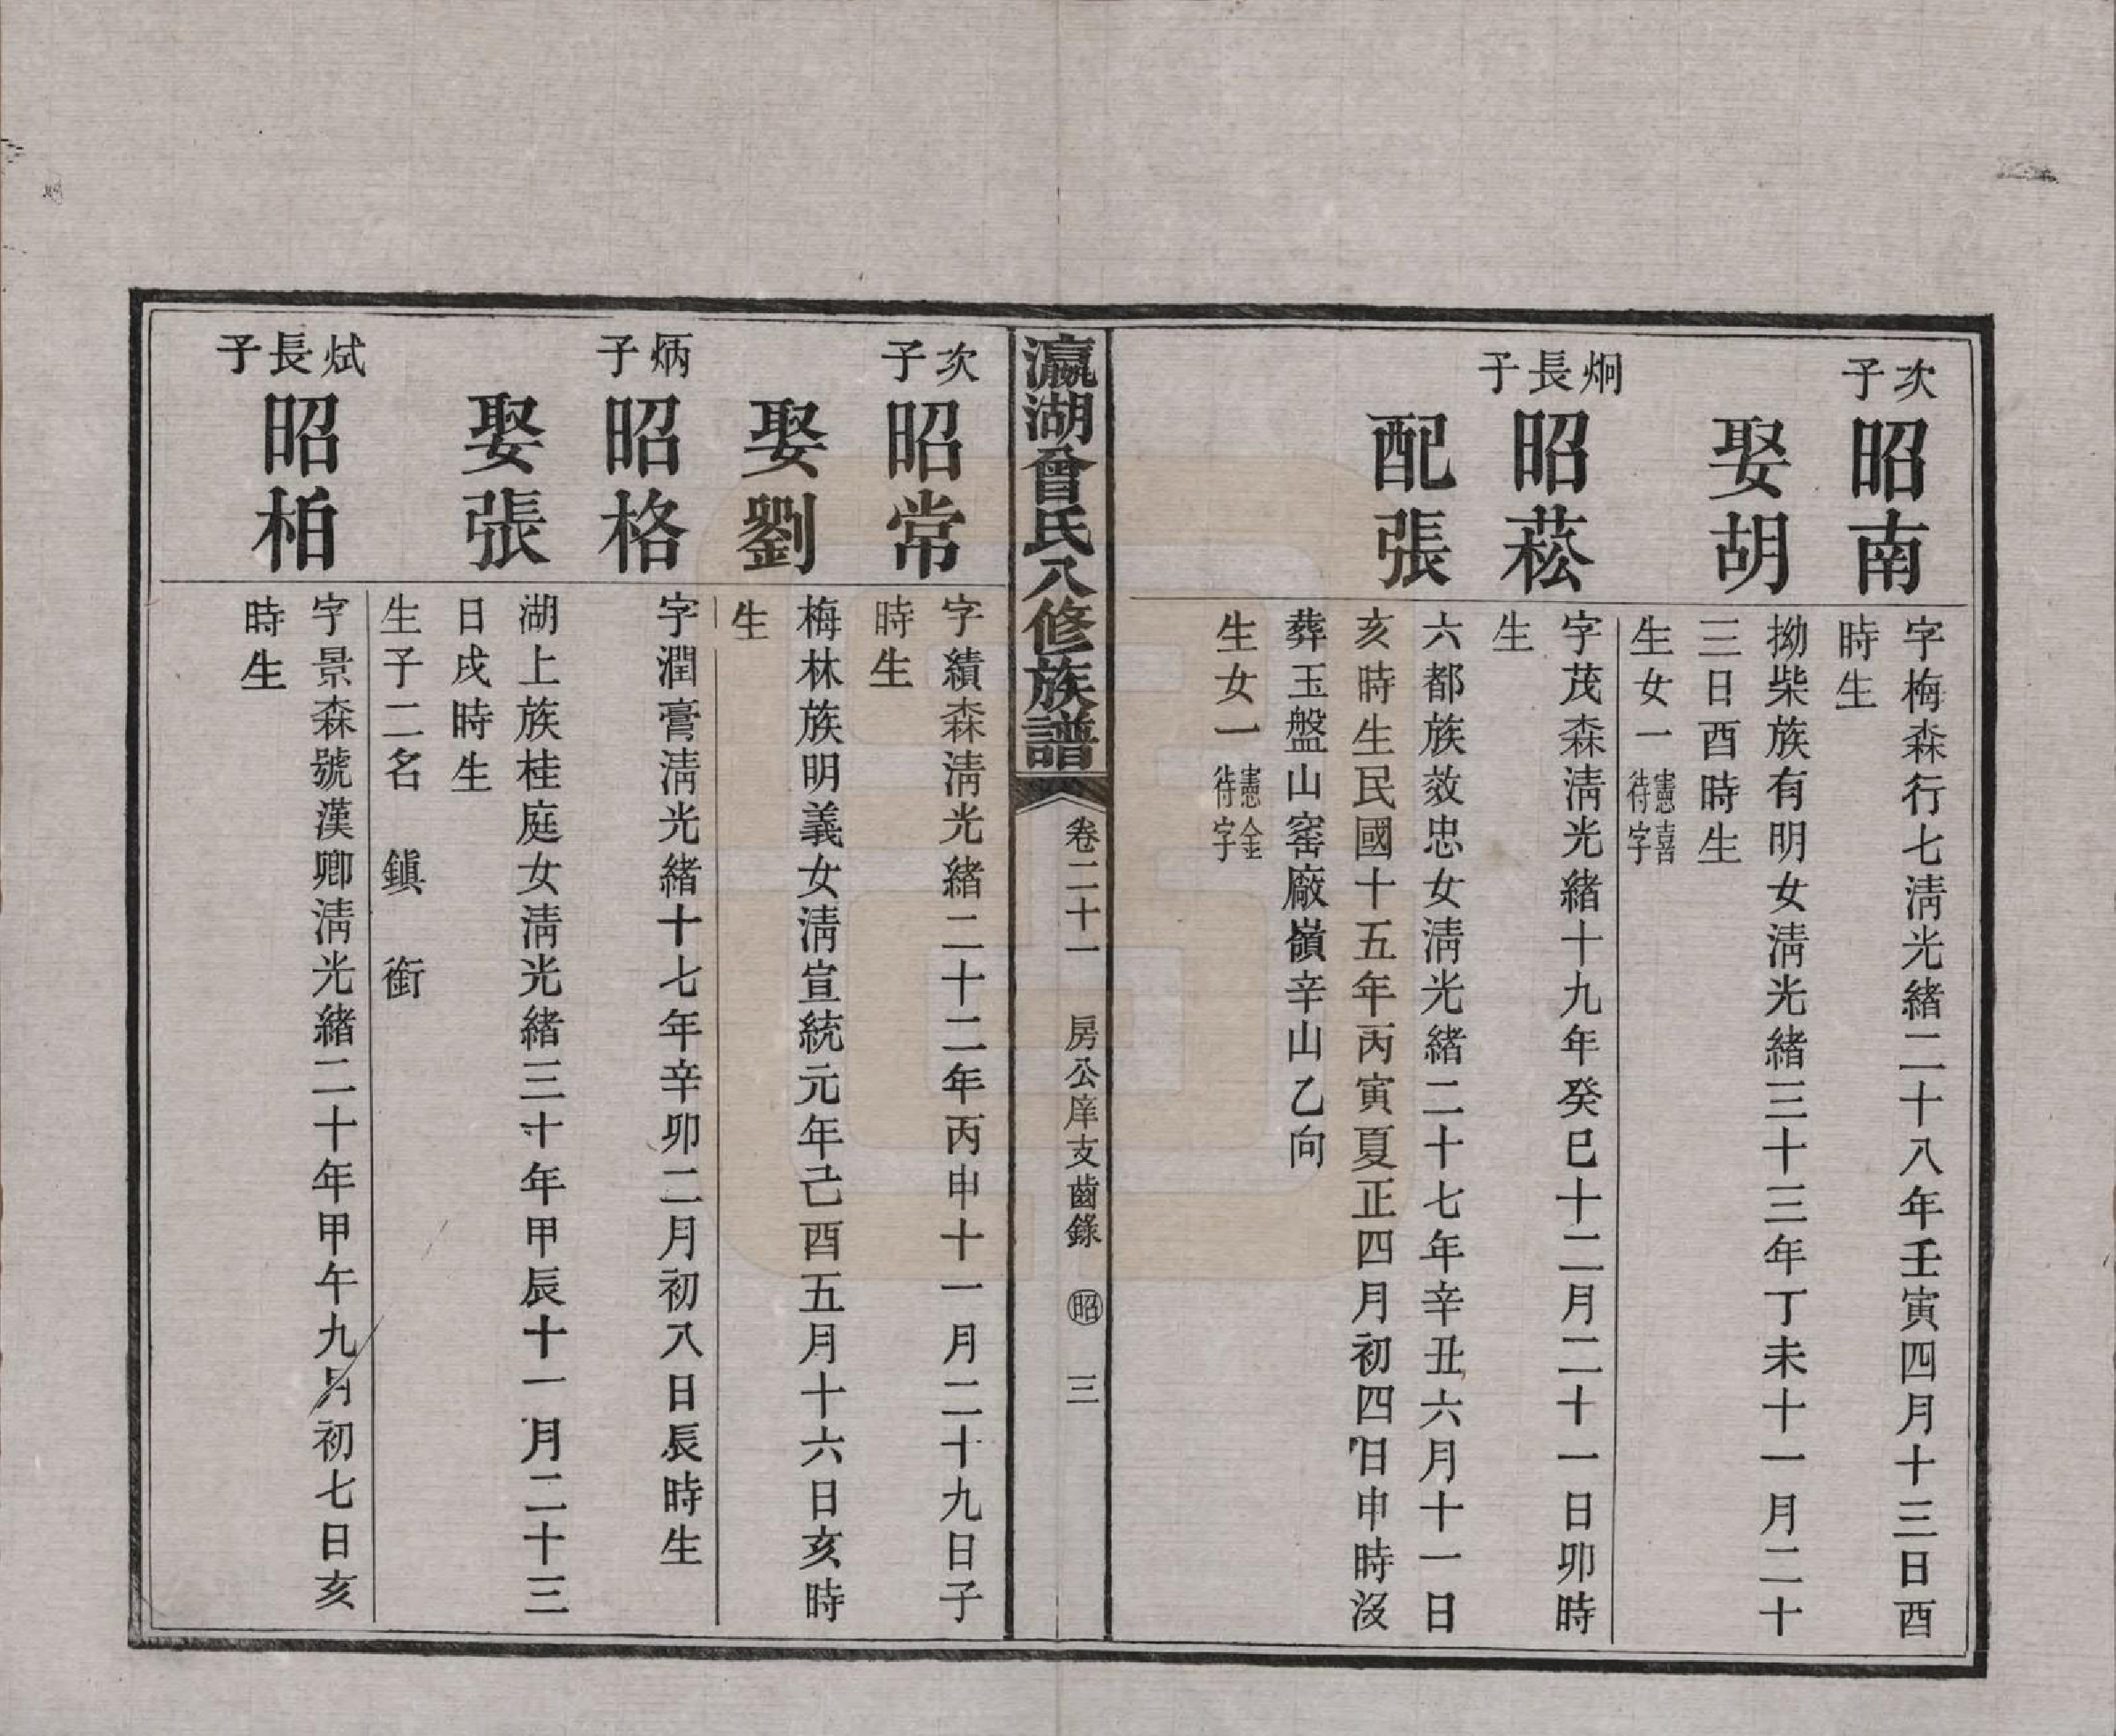 次子
昭南
字梅森行七淸光緒二十八年壬寅四月十三日酉
時生
娶胡
拗柴族有明女淸光緒三十三年丁未十一月二十
三日酉時生
生女一憲喜待字
炯長子
昭菘
字茂森淸光緒十九年癸巳十二月二十一日卯時
生
配張
六都族效忠女淸光緒二十七年辛丑六月十一日
亥時生民國十五年丙寅夏正四月初四日申時沒
葬玉盤山窰廠嶺辛山乙向
生女一憲金待字
瀛湖曾氏八修族譜
卷二十一
房公庠支齒錄
昭
三
次子
昭常
字績森淸光緒二十二年丙申十一月二十九日子
時生
娶劉
梅林族明義女淸宣統元年己酉五月十六日亥時
生
炳子
昭格
字潤膏淸光緒十七年辛卯二月初八日辰時生
娶張
湖上族桂庭女淸光緒三十年甲辰十一月二十三
日戌時生
生子二名 鎭 銜
烒長子
昭栢
字景森號漢卿淸光緒二十年甲午九月初七日亥
時生